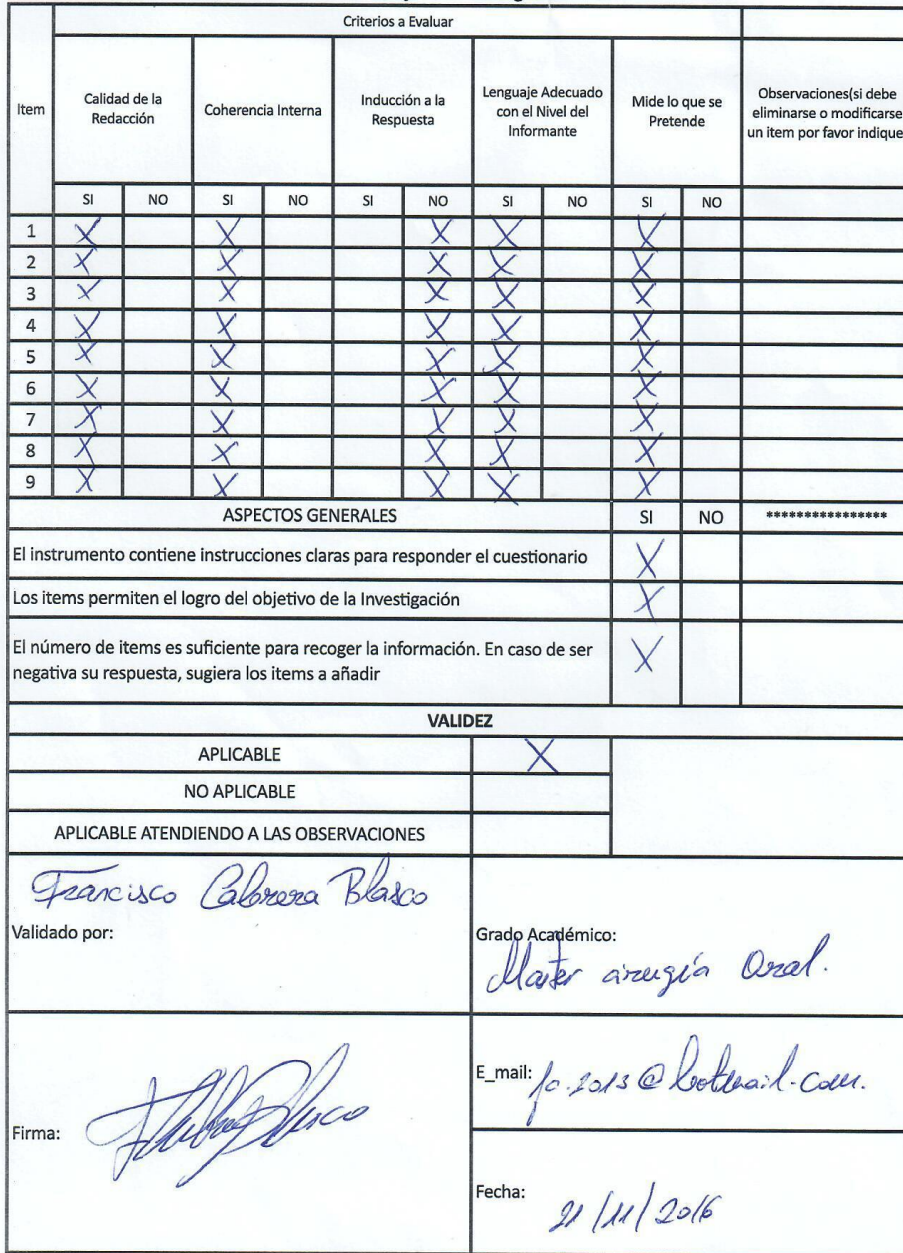 Criterios a Evaluar
Item
Calidad de la
Redacción
Coherencia Interna
Inducción a la
Respuesta
Lenguaje Adecuado
con el Nivel del
Informante
Mide lo que se
Pretende
Observaciones(si debe
eliminarse o modificarse
un item por favor indique
SI NO SI NO SI NO SI NO SI NO
1 X X X X X
2 X X X X X
3 X X X X X
4 X X X X X
5 X X X X X
6 X X X X X
7 X X X X X
8 X X X X X
9 X X X X X
ASPECTOS GENERALES SI NO ****************
El instrumento contiene instrucciones claras para responder el cuestionario X
Los items permiten el logro del objetivo de la Investigación X
El número de items es suficiente para recoger la información. En caso de ser
negativa su respuesta, sugiera los items a añadir X
VALIDEZ
APLICABLE X
NO APLICABLE
APLICABLE ATENDIENDO A LAS OBSERVACIONES
Francisco Cabrera Blasco
Validado por:
Grado Académico:
Master cirugía Oral.
Firma:
E_mail: @hotmail.com.
Fecha:
21/11/2016